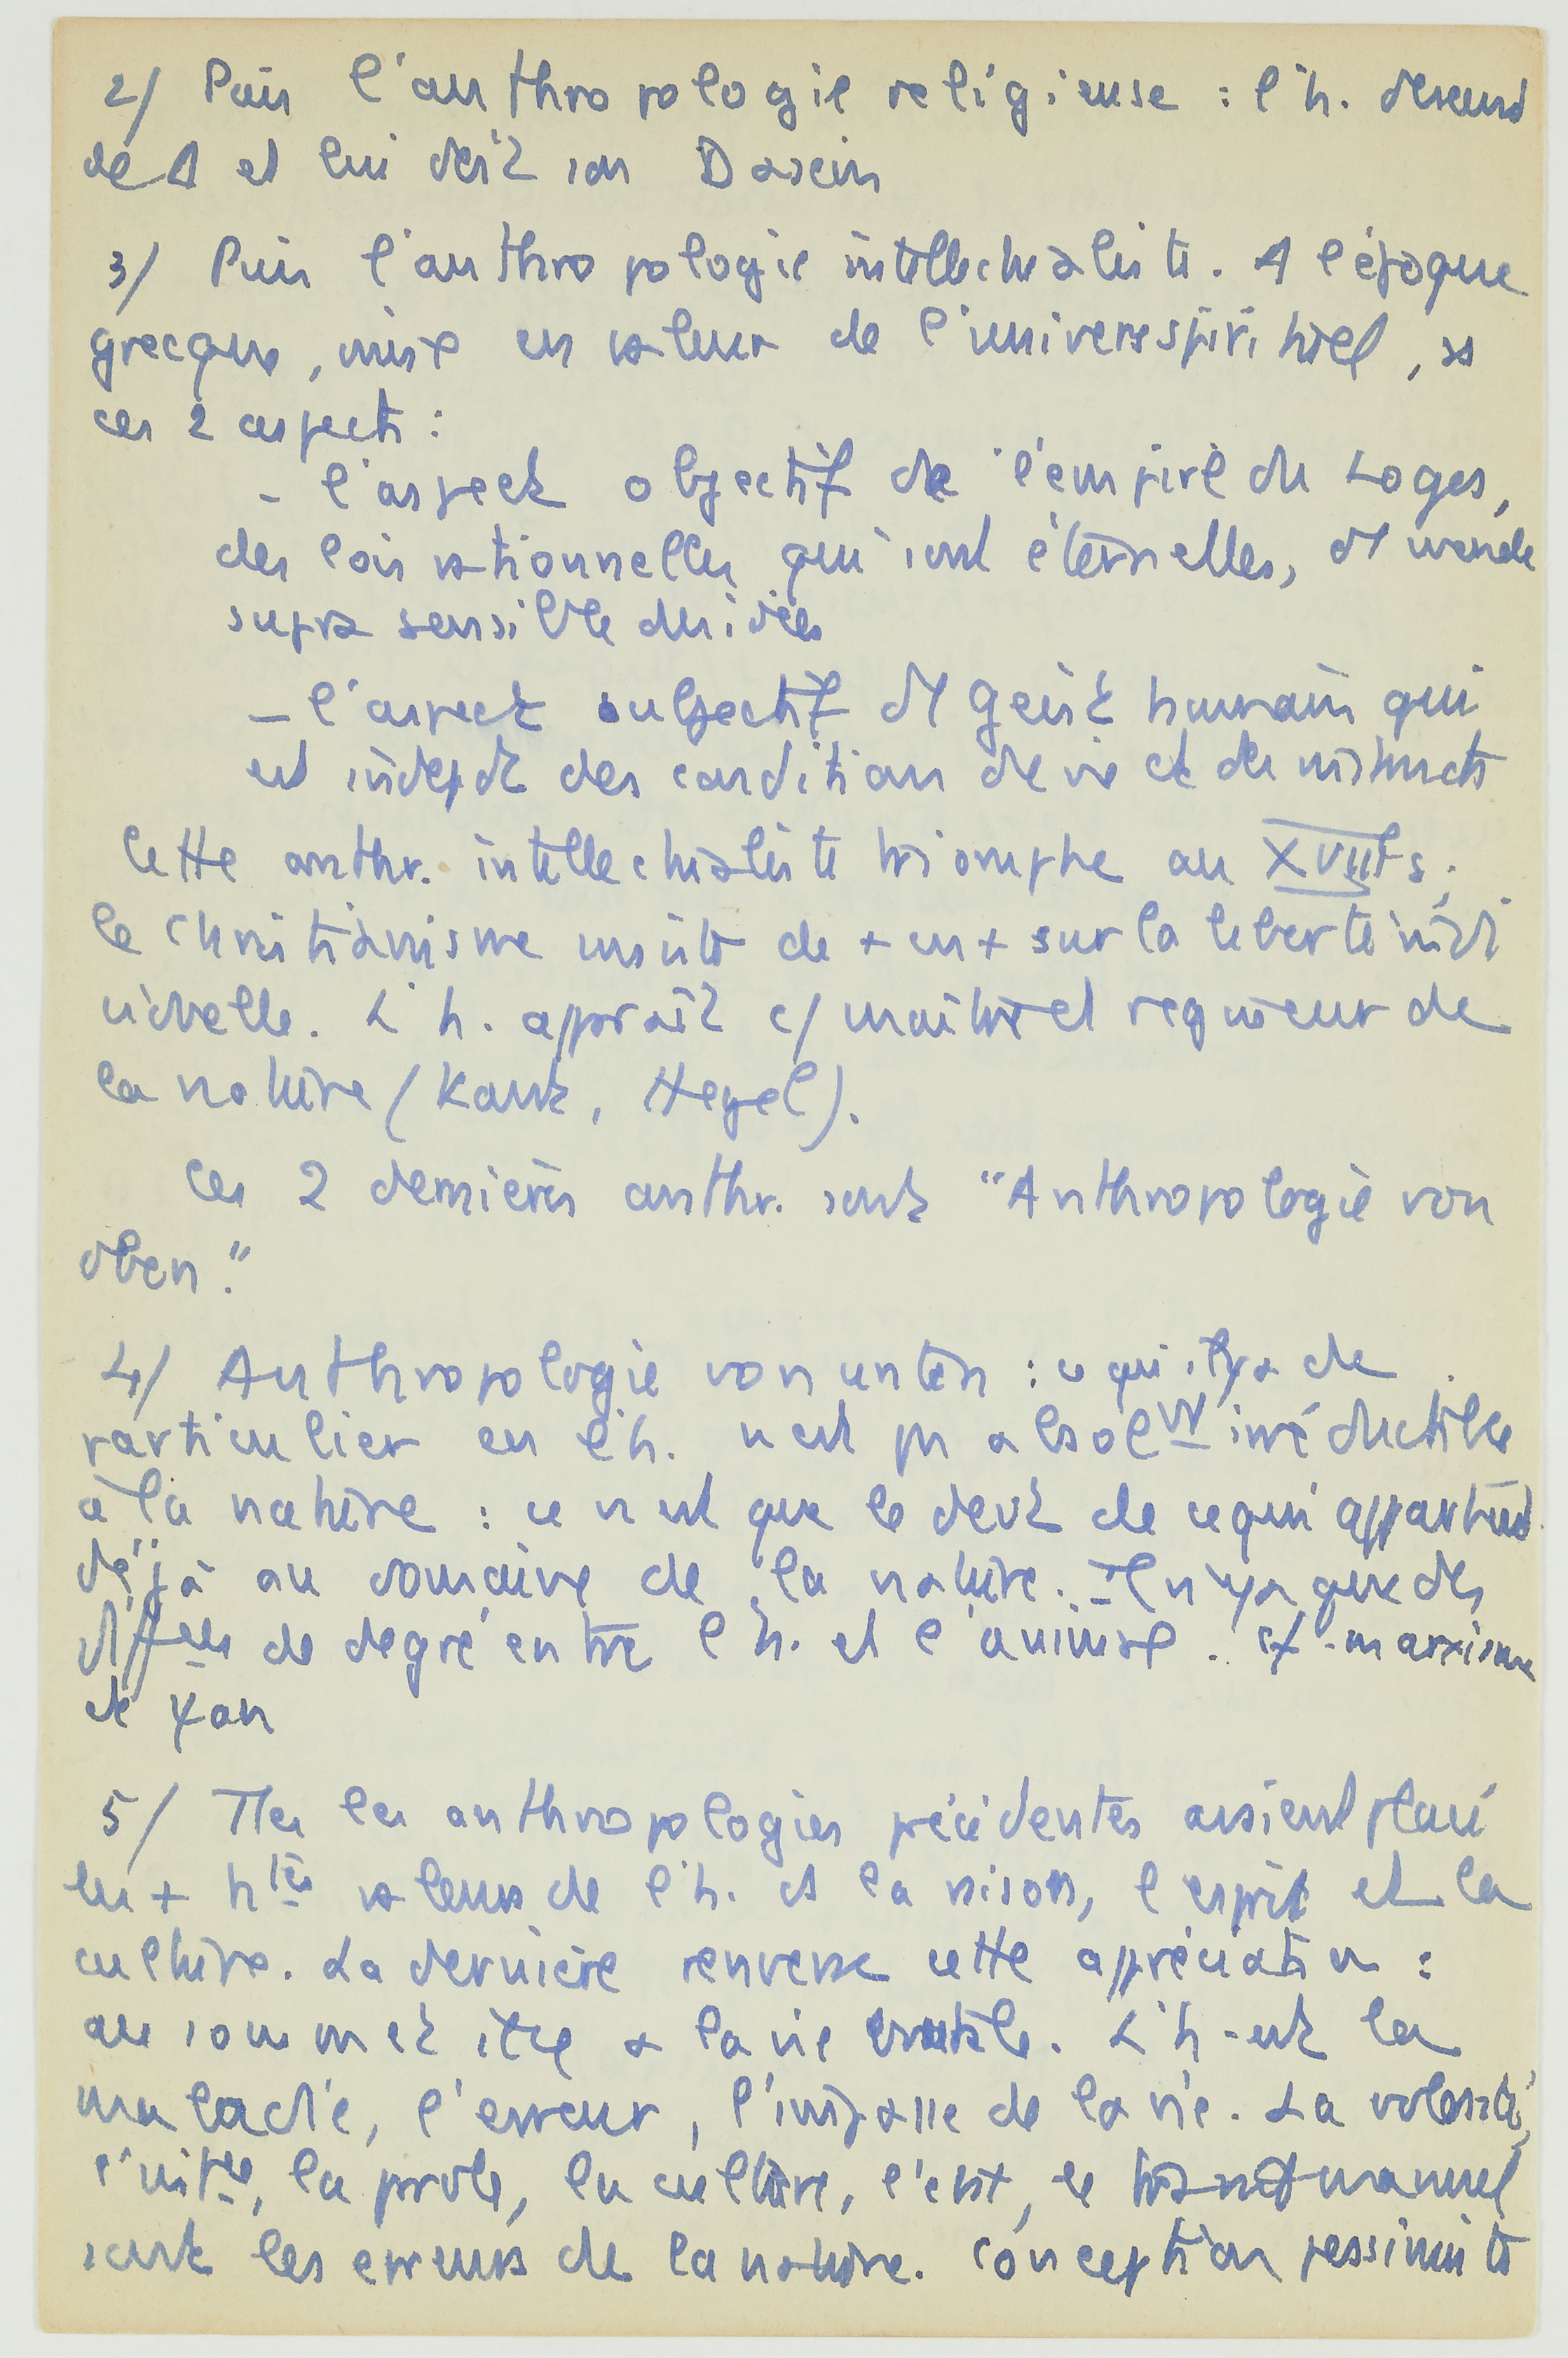 2/ Puis l'anthropologie religieuse : l'h. descend
de Δ et lui doit son Dasein
3/ Puis l'anthropologie intellectualiste. A l'époque
grecque, mise en valeur de l'univers spirituel, ss
ces 2 aspects :
- l'aspect objectif de l'empire du Logos,
des lois rationnelles qui sont éternelles, du monde
supra sensible des idées
- l'aspect subjectif de l'esprit humain qui
est indépdt des conditions de vie et des instincts
Cette anthr. intellectualiste triomphe au XVIIIe s ;
le christianisme insiste de + en + sur la liberté indi
viduelle. L'h. apparaît c/ maître et seigneur de
la nature (Kant, Hegel).
Ces 2 dernières anthr. sont "Anthropologie von
oben."
4/ Anthropologie von unten : ce qu'il y a de
particulier en l'h. n'est pas absolnt irréductible
à la nature : ce n'est que le devt de ce qui appartient
déjà au domaine de la nature. Il n'y a que des
différences de degré entre l'h. et l'animal. cf marxisme
5/ Ttes les anthropologies précédentes avaient placé
les + htes valeurs de l'h. ds la raison, l'esprit et la
culture. La dernière renverse cette appréciation :
au sommet il y a la vie brutale. L'h. est la
maladie, l'erreur, l'impasse de la vie. La volonté,
la parole, la culture, le travail manuel
sont les erreurs de la nature. Conception pessimiste